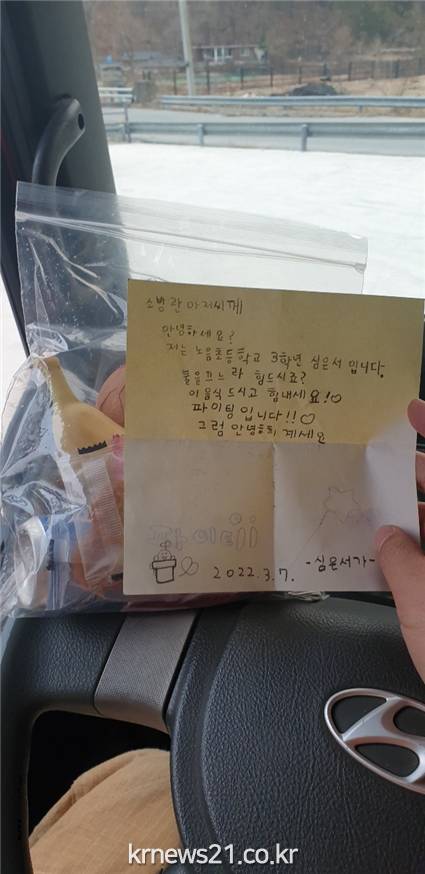 소방관 아저씨께
안녕하세요?
저는 노음초등학교 3학년 심은서 입니다.
불을 끄느라 힘드시죠?
이음식 드시고 힘내세요!♡
파이팅 입니다!!♡
그럼 안녕히 계세요
파이팅!!
2022.3.7.
-심은서가-
krnews21.co.kr